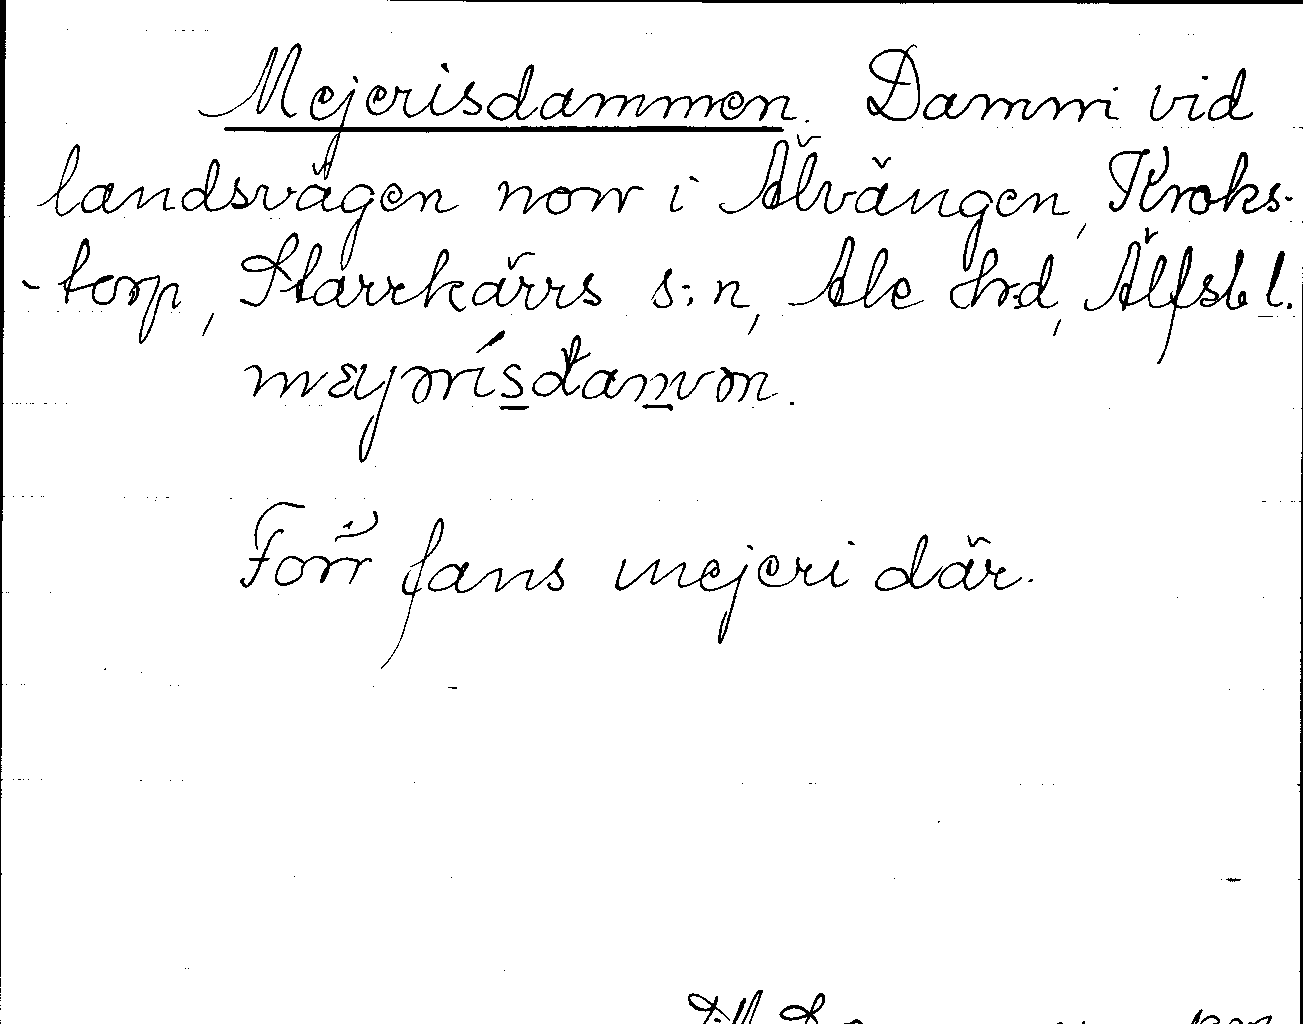 Mejerisdammen. Damm vid
landsvägen norr i Älvängen, Kroks-
-torp, Starrkärrs s:n, Ale hrd, Älfsb l.
Förr fans mejeri där.